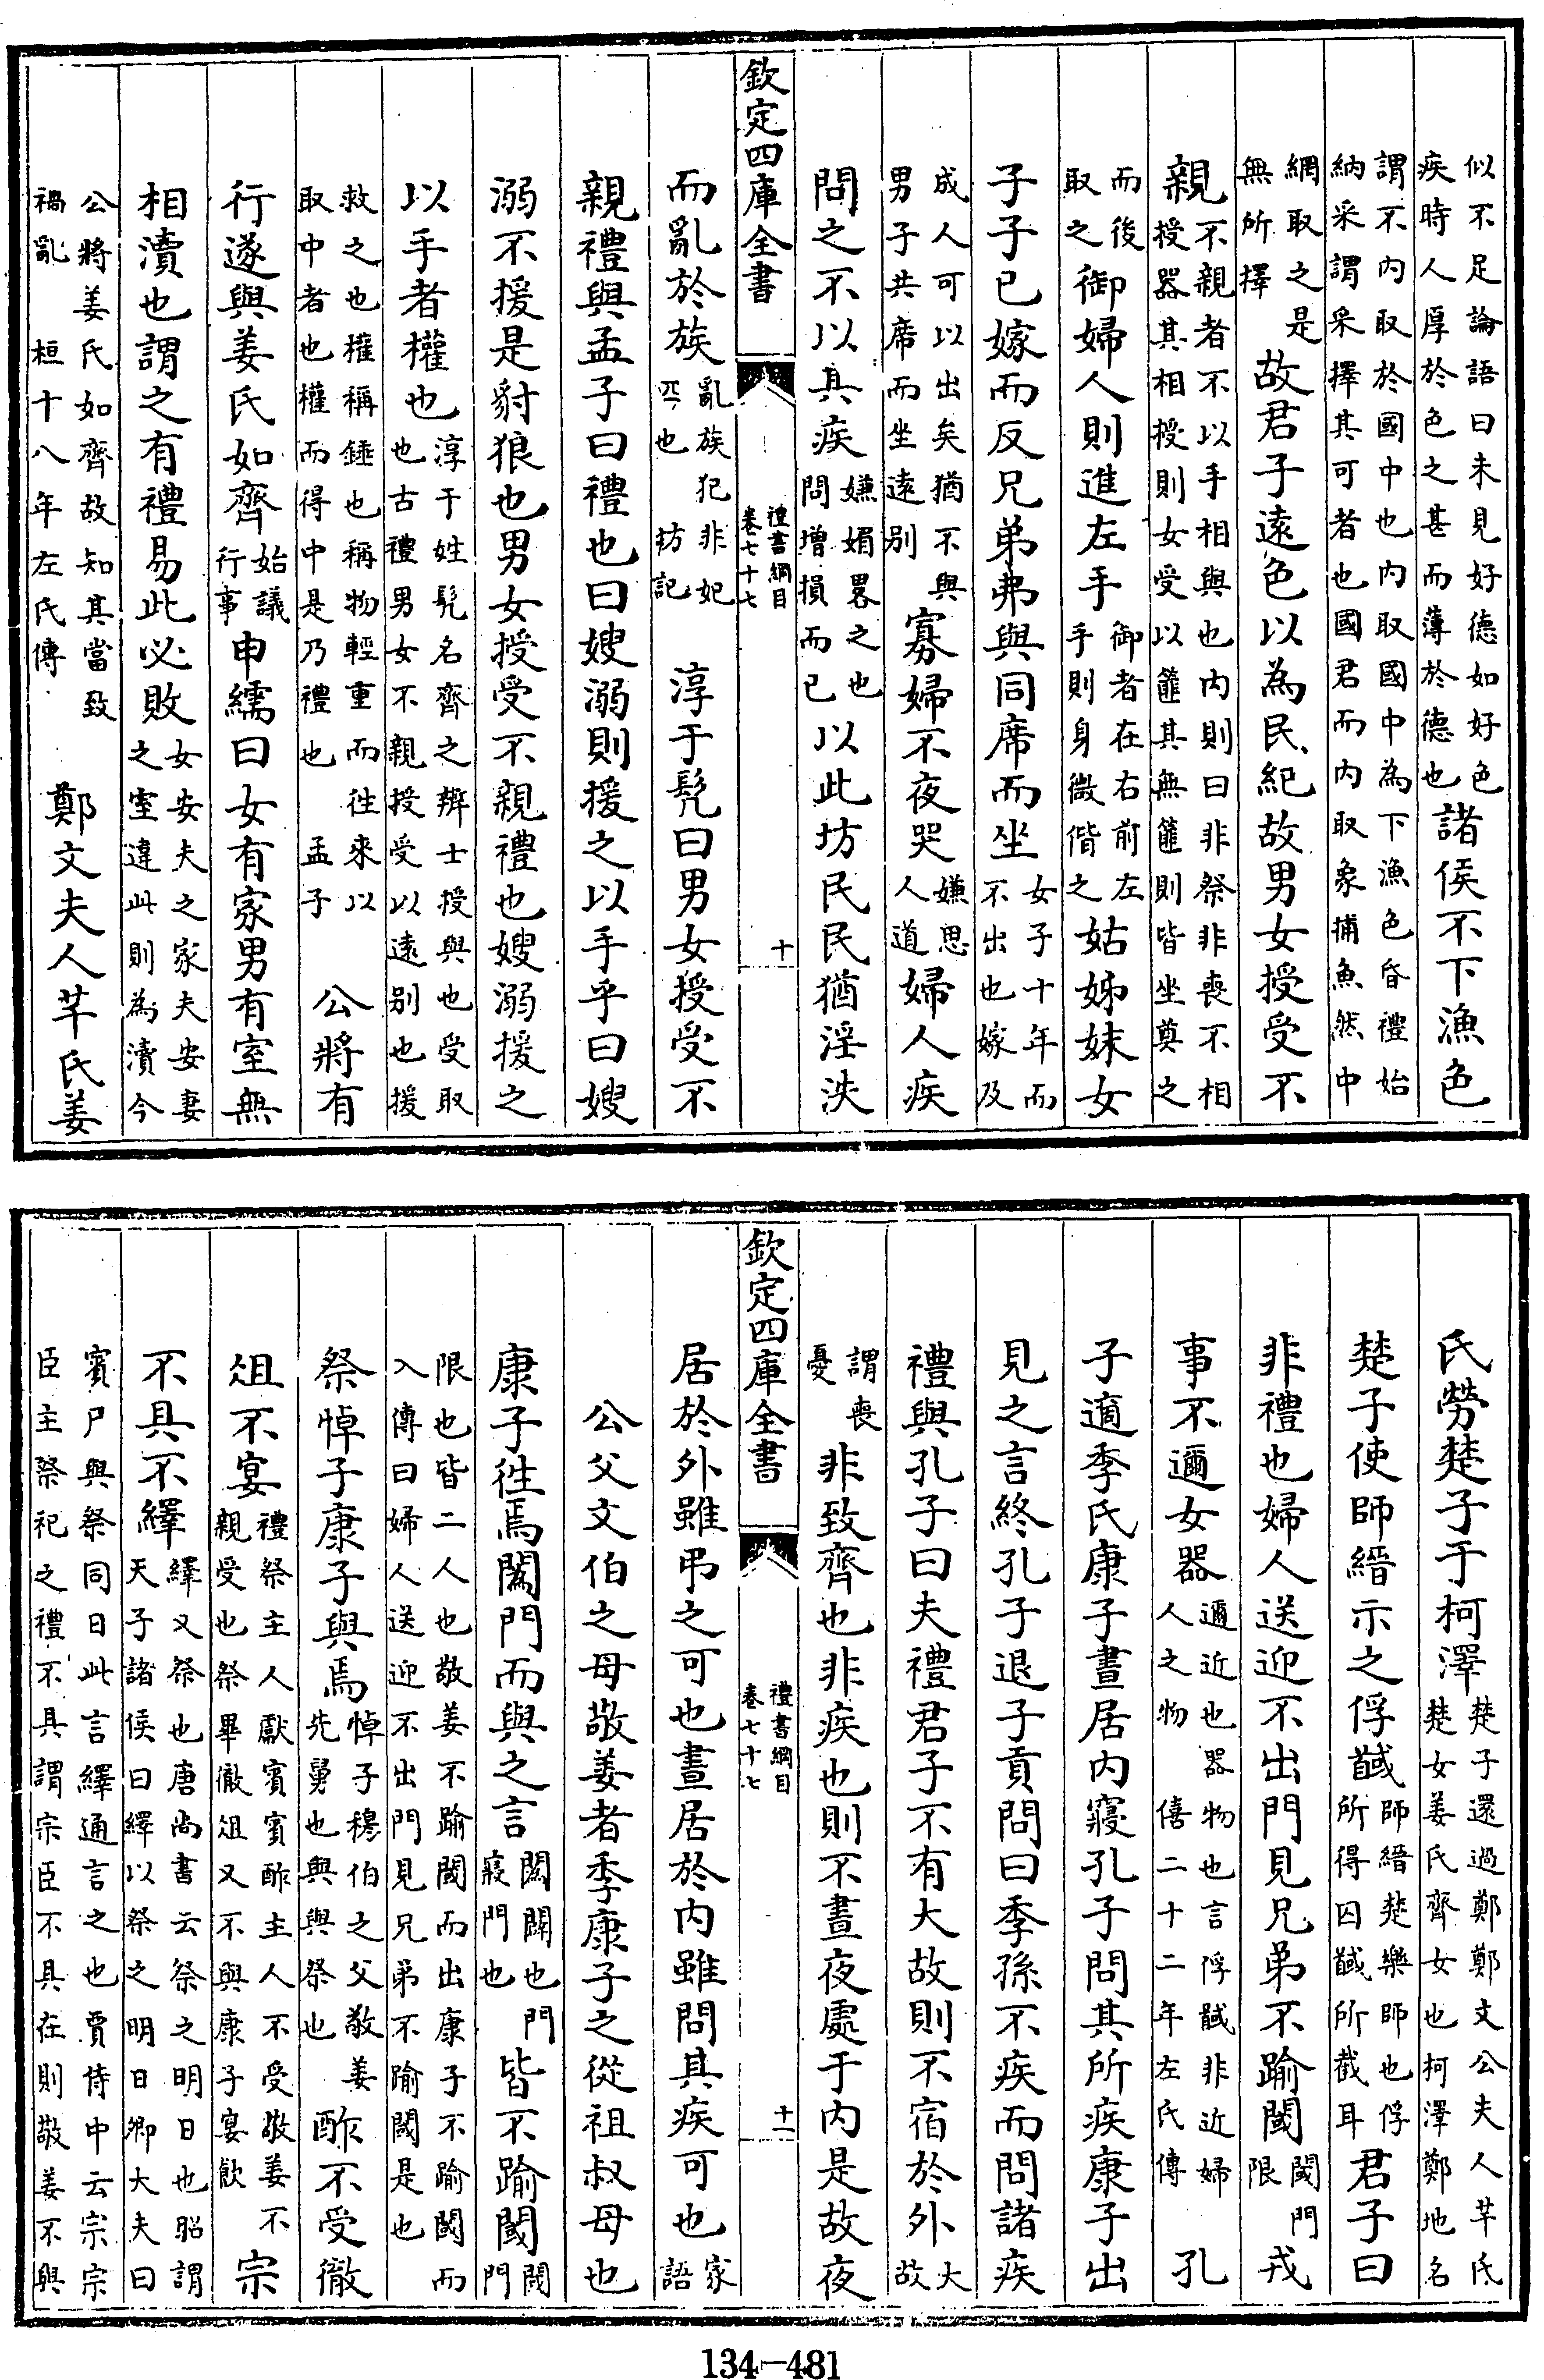 似不足論語曰未見好德如好色
疾時人厚於色之甚而薄於德也諸侯不下漁色
謂不內取於國中也內取國中為下漁色昏禮始
納采謂采擇其可者也國君而內取象捕魚然中
網取之是
無所擇故君子遠色以為民紀故男女授受不
親不親者不以手相與也內則曰非祭非喪不相
授器其相授則女受以篚其無篚則皆坐奠之
而後
取之御婦人則進左手御者在右前左
手則身微偕之姑姊妹女
子子已嫁而反兄弟弗與同席而坐女子十年而
不出也嫁及
成人可以出矣猶不與
男子共席而坐遠別寡婦不夜哭嫌思
人道婦人疾
問之不以其疾嫌媚畧之也
問增損而已以此坊民民猶淫泆
欽定四庫全書
禮書綱目
卷七十七
十
而亂於族亂族犯非妃
匹也 坊記 淳于髡曰男女授受不
親禮與孟子曰禮也曰嫂溺則援之以手乎曰嫂
溺不援是豺狼也男女授受不親禮也嫂溺援之
以手者權也淳于姓髡名齊之辨士授與也受取
也古禮男女不親授受以遠别也援
救之也權稱錘也稱物輕重而往來以
取中者也權而得中是乃禮也 孟子 公將有
行遂與姜氏如齊始議
行事申繻曰女有家男有室無
相瀆也謂之有禮易此必敗女安夫之家夫安妻
之室違此則為瀆今
公將姜氏如齊故知其當致
禍亂 桓十八年左氏傳 鄭文夫人芊氏姜
氏勞楚子于柯澤楚子還過鄭鄭文公夫人芊氏
楚女姜氏齊女也柯澤鄭地名
楚子使師縉示之俘馘師縉楚樂師也俘
所得囚馘所截耳君子曰
非禮也婦人送迎不出門見兄弟不踰閾閾門
限戎
事不邇女器邇近也器物也言俘馘非近婦
人之物 僖二十二年左氏傳 孔
子適季氏康子晝居內寢孔子問其所疾康子出
見之言終孔子退子貢問曰季孫不疾而問諸疾
禮與孔子曰夫禮君子不有大故則不宿於外大
故
謂喪
憂非致齊也非疾也則不晝夜處于內是故夜
欽定四庫全書
禮書綱目
卷七十七
十一
居於外雖弔之可也晝居於內雖問其疾可也家
語
公父文伯之母敬姜者季康子之從祖叔母也
康子往焉䦱門而與之言䦱闢也門
寢門也皆不踰閾閾
門
限也皆二人也敬姜不踰閾而出康子不踰閾而
入傳曰婦人送迎不出門見兄弟不踰閾是也
祭悼子康子與焉悼子穆伯之父敬姜
先舅也與與祭也酢不受徹
俎不宴禮祭主人獻賓賓酢主人不受敬姜不
親受也祭畢徹俎又不與康子宴飲宗
不具不繹繹又祭也唐尚書云祭之明日也昭謂
天子諸侯曰繹以祭之明日卿大夫曰
賓尸與祭同日此言繹通言之也賈侍中云宗宗
臣主祭祀之禮不具謂宗臣不具在則敬姜不與
134-481